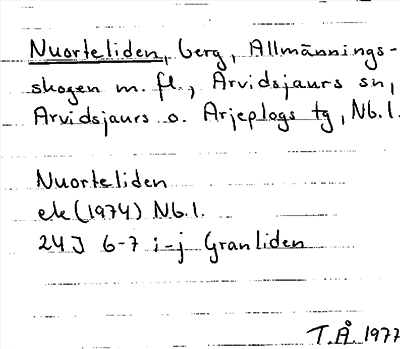 Nuorteliden, berg, Allmännings-
skogen m. fl., Arvidsjaurs sn,
Arvidsjaurs o. Arjeplogs tg, Nb.l.
Nuorteliden
ek (1974) Nb.l.
24J 6-7 i-j Granliden
T.Å. 1977